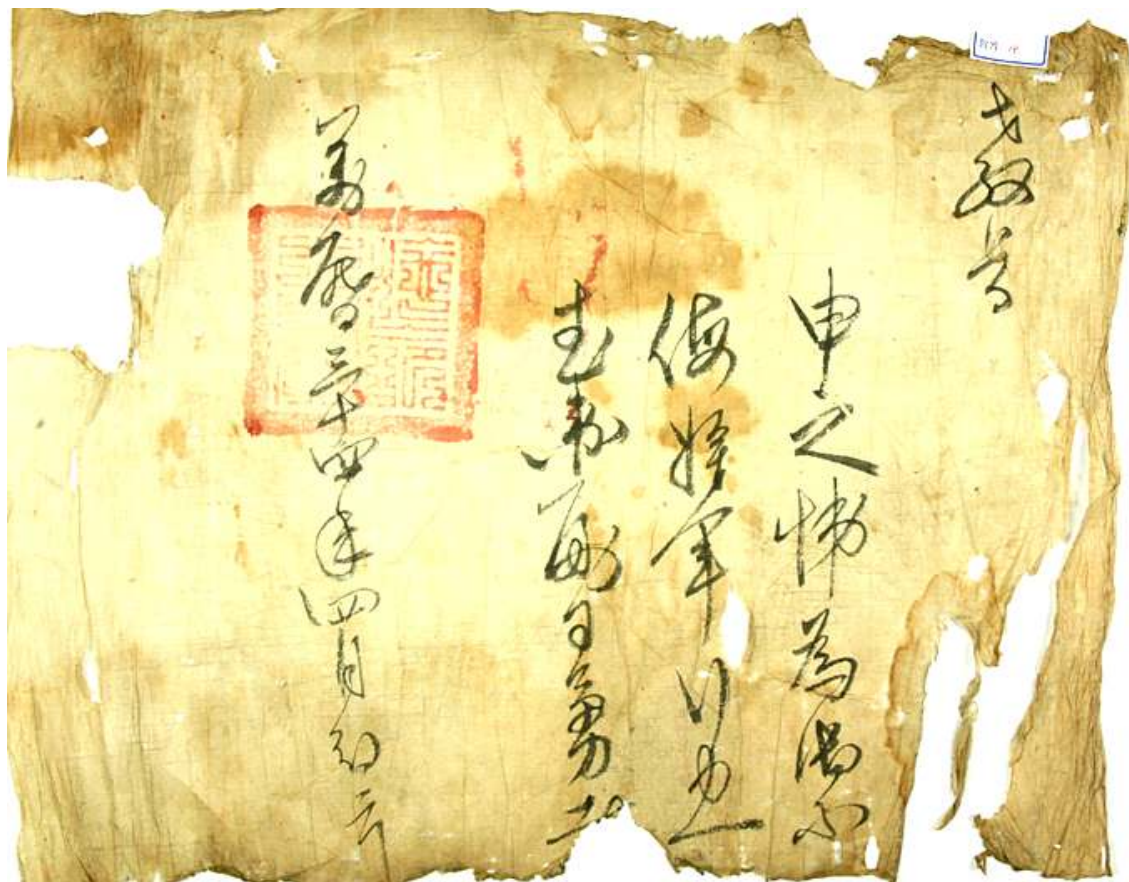 教旨
申之悌為禦
侮將軍行忠
武衛副司勇者
萬曆三十四年四月初六